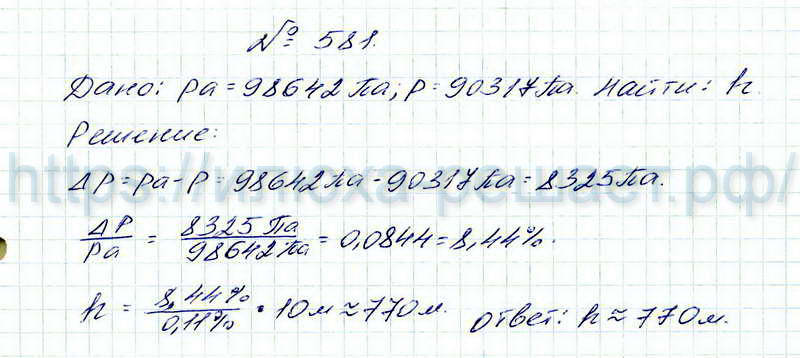 № 581.
Дано: pa = 98642 Па; p = 90317 Па. Найти: h.
Решение:
ΔP = pa - p = 98642 Па - 90317 Па = 8325 Па.
ΔP/Pa = 8325 Па/98642 Па = 0,0844 = 8,44%.
h = 8,44%/0,11% • 10 м ≈ 770 м. Ответ: h ≈ 770 м.
https://илюха-решает.рф/